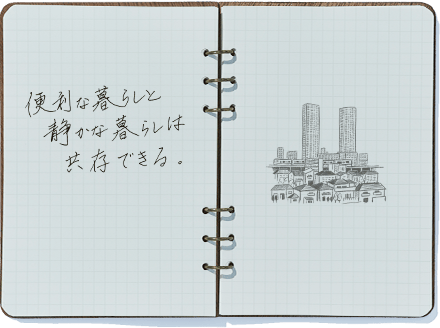 便利な暮らしと
静かな暮らしは
共存できる。